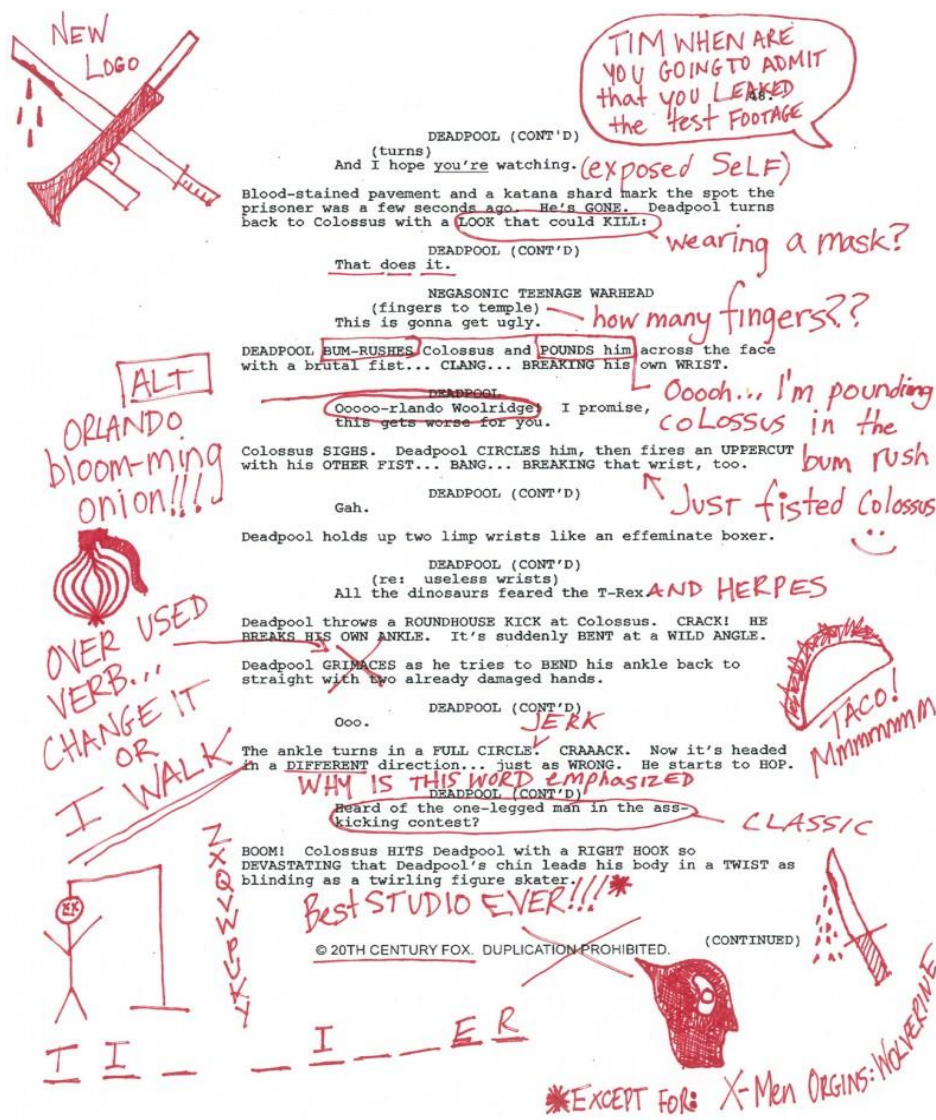 NEW
LOGO
TIM WHEN ARE
YOU GOING TO ADMIT
that you LEAKED
the test FOOTAGE
48.
DEADPOOL (CONT'D)
(turns)
And I hope you're watching. (exposed SeLF)
Blood-stained pavement and a katana shard mark the spot the
prisoner was a few seconds ago. He's GONE. Deadpool turns
back to Colossus with a LOOK that could KILL:
wearing a mask?
DEADPOOL (CONT'D)
That does it.
NEGASONIC TEENAGE WARHEAD
(fingers to temple)
how many fingers??
This is gonna get ugly.
DEADPOOL BUM-RUSHES Colossus and POUNDS him across the face
with a brutal fist... CLANG... BREAKING his own WRIST.
ALT
ORLANDO
bloom-ming
onion!!!
DEADPOOL
Ooooo-rlando Woolridge! I promise,
this gets worse for you.
Ooooh... I'm pounding
COLOSSUS in the
bum rush
Colossus SIGHS. Deadpool CIRCLES him, then fires an UPPERCUT
with his OTHER FIST... BANG... BREAKING that wrist, too.
Just fisted Colossus
DEADPOOL (CONT'D)
Gah.
Deadpool holds up two limp wrists like an effeminate boxer.
DEADPOOL (CONT'D)
(re: useless wrists)
All the dinosaurs feared the T-Rex. AND HERPES
Deadpool throws a ROUNDHOUSE KICK at Colossus. CRACK! HE
BREAKS HIS OWN ANKLE. It's suddenly BENT at a WILD ANGLE.
OVER USED
VERB...
CHANGE IT
OR
I WALK
Deadpool GRIMACES as he tries to BEND his ankle back to
straight with two already damaged hands.
TACO!
Mmmmmmm
DEADPOOL (CONT'D)
Ooo.
JERK
The ankle turns in a FULL CIRCLE. CRAAACK. Now it's headed
in a DIFFERENT direction... just as WRONG. He starts to HOP.
WHY IS THIS WORD emphasized
DEADPOOL (CONT'D)
Heard of the one-legged man in the ass-
kicking contest?
CLASSIC
BOOM! Colossus HITS Deadpool with a RIGHT HOOK so
DEVASTATING that Deadpool's chin leads his body in a TWIST as
blinding as a twirling figure skater.
Best STUDIO EVER!!!*
(CONTINUED)
© 20TH CENTURY FOX. DUPLICATION PROHIBITED.
T I _ _ _ I _ _ _ E R
*EXCEPT FOR: X-Men ORGINS: WOLVERINE